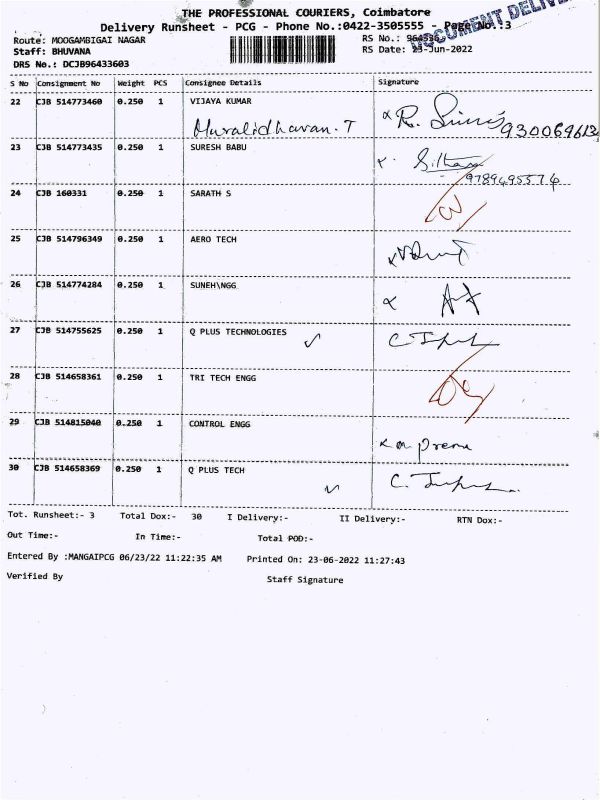 THE PROFESSIONAL COURIERS, Coimbatore
Delivery Runsheet - PCG - Phone No.:0422-3505555 - Page No.:3
DOCUMENT
Route: MOOGAMBIGAI NAGAR
RS No.:
Staff: BHUVANA
RS Date: 23-Jun-2022
DRS No.: DCJB96433603
S No Consignment No Weight PCS Consignee Details Signature
22 CJB 514773460 0.250 1 VIJAYA KUMAR
Muralidharan.T
23 CJB 514773435 0.250 1 SURESH BABU
9789495574
24 CJB 160331 0.250 1 SARATH S
25 CJB 514796349 0.250 1 AERO TECH
26 CJB 514774284 0.250 1 SUNEH\NGG
27 CJB 514755625 0.250 1 Q PLUS TECHNOLOGIES
28 CJB 514658361 0.250 1 TRI TECH ENGG
29 CJB 514815040 0.250 1 CONTROL ENGG
30 CJB 514658369 0.250 1 Q PLUS TECH
Tot. Runsheet:- 3 Total Dox:- 30 I Delivery:- II Delivery:- RTN Dox:-
Out Time:- In Time:- Total POD:-
Entered By :MANGAIPCG 06/23/22 11:22:35 AM Printed On: 23-06-2022 11:27:43
Verified By Staff Signature